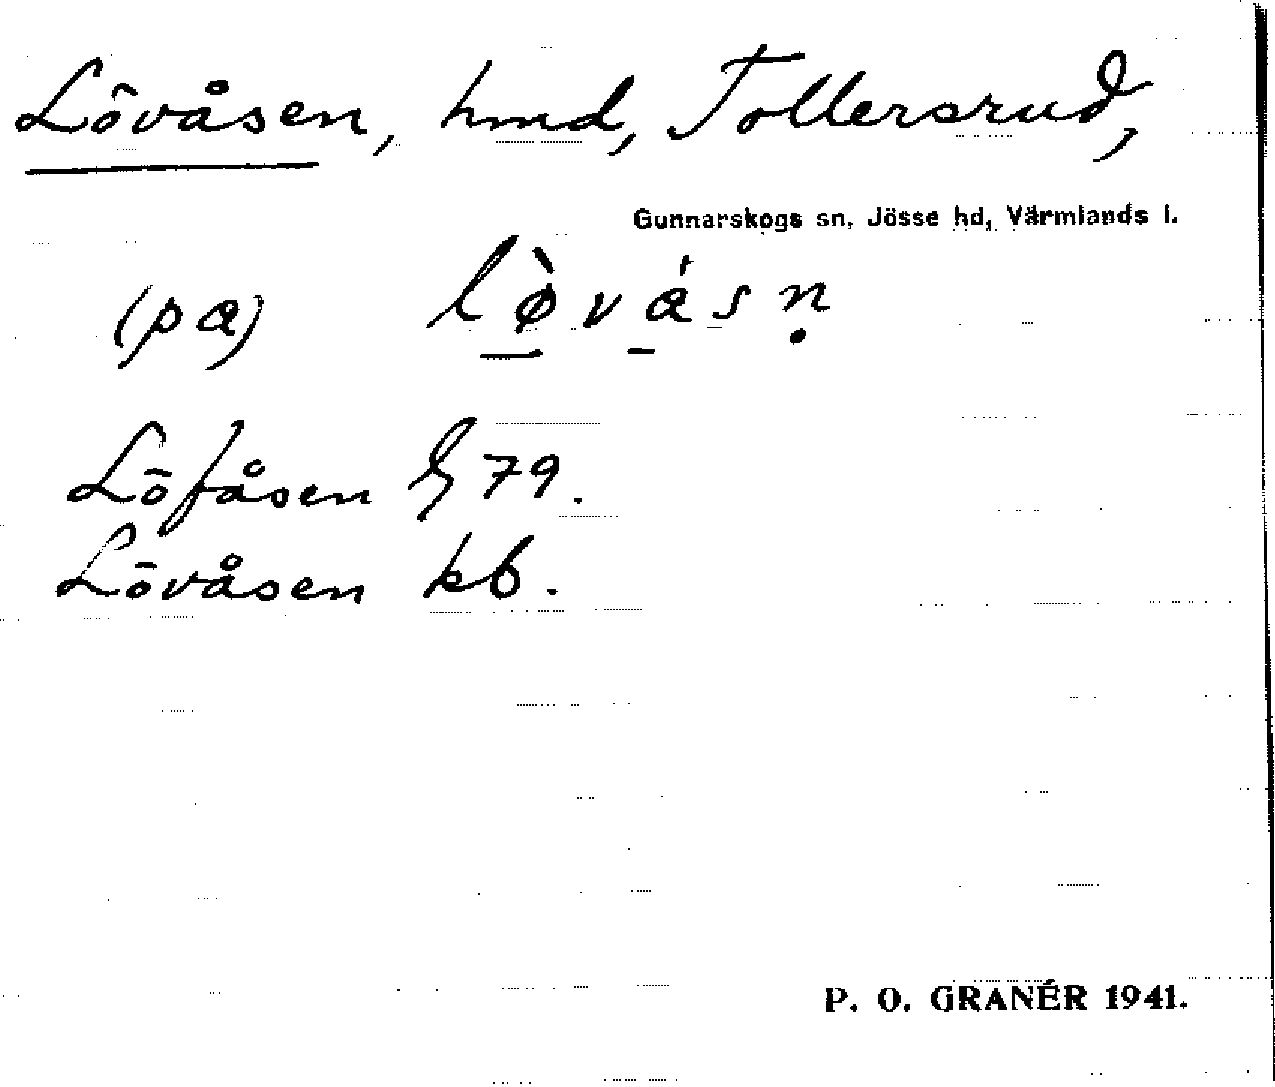 Lövåsen, hmd, Tollersrud,
Gunnarskogs sn, Jösse hd, Värmlands l.
(pa) lø̀vásṇ
Löfåsen G 79.
Lövåsen kb.
P. O. GRANÉR 1941.